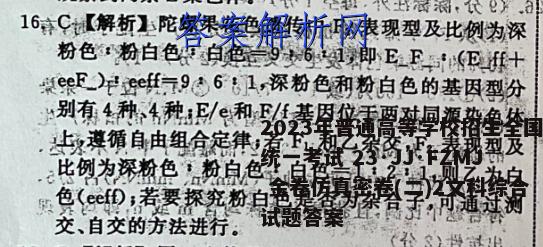 16. C【解析】陀螺果花色遗传中,F₂表现型及比例为深
粉色:粉白色:白色=9:6:1,即E_F_:(E_ff+
eeF_):eeff=9:6:1,深粉色和粉白色的基因型分
别有4种、4种;E/e和F/f基因位于两对同源染色体
上,遵循自由组合定律;若F₁和乙杂交,F₂表现型及
比例为深粉色:粉白色:白色=1:2:1,则乙为白
色(eeff);若要探究粉白色是否为杂合子,可通过测
交、自交的方法进行。
答案解析网
2023年普通高等学校招生全国
统一考试 23·JJ·FZMJ
金卷仿真密卷(二)2文科综合
试题答案